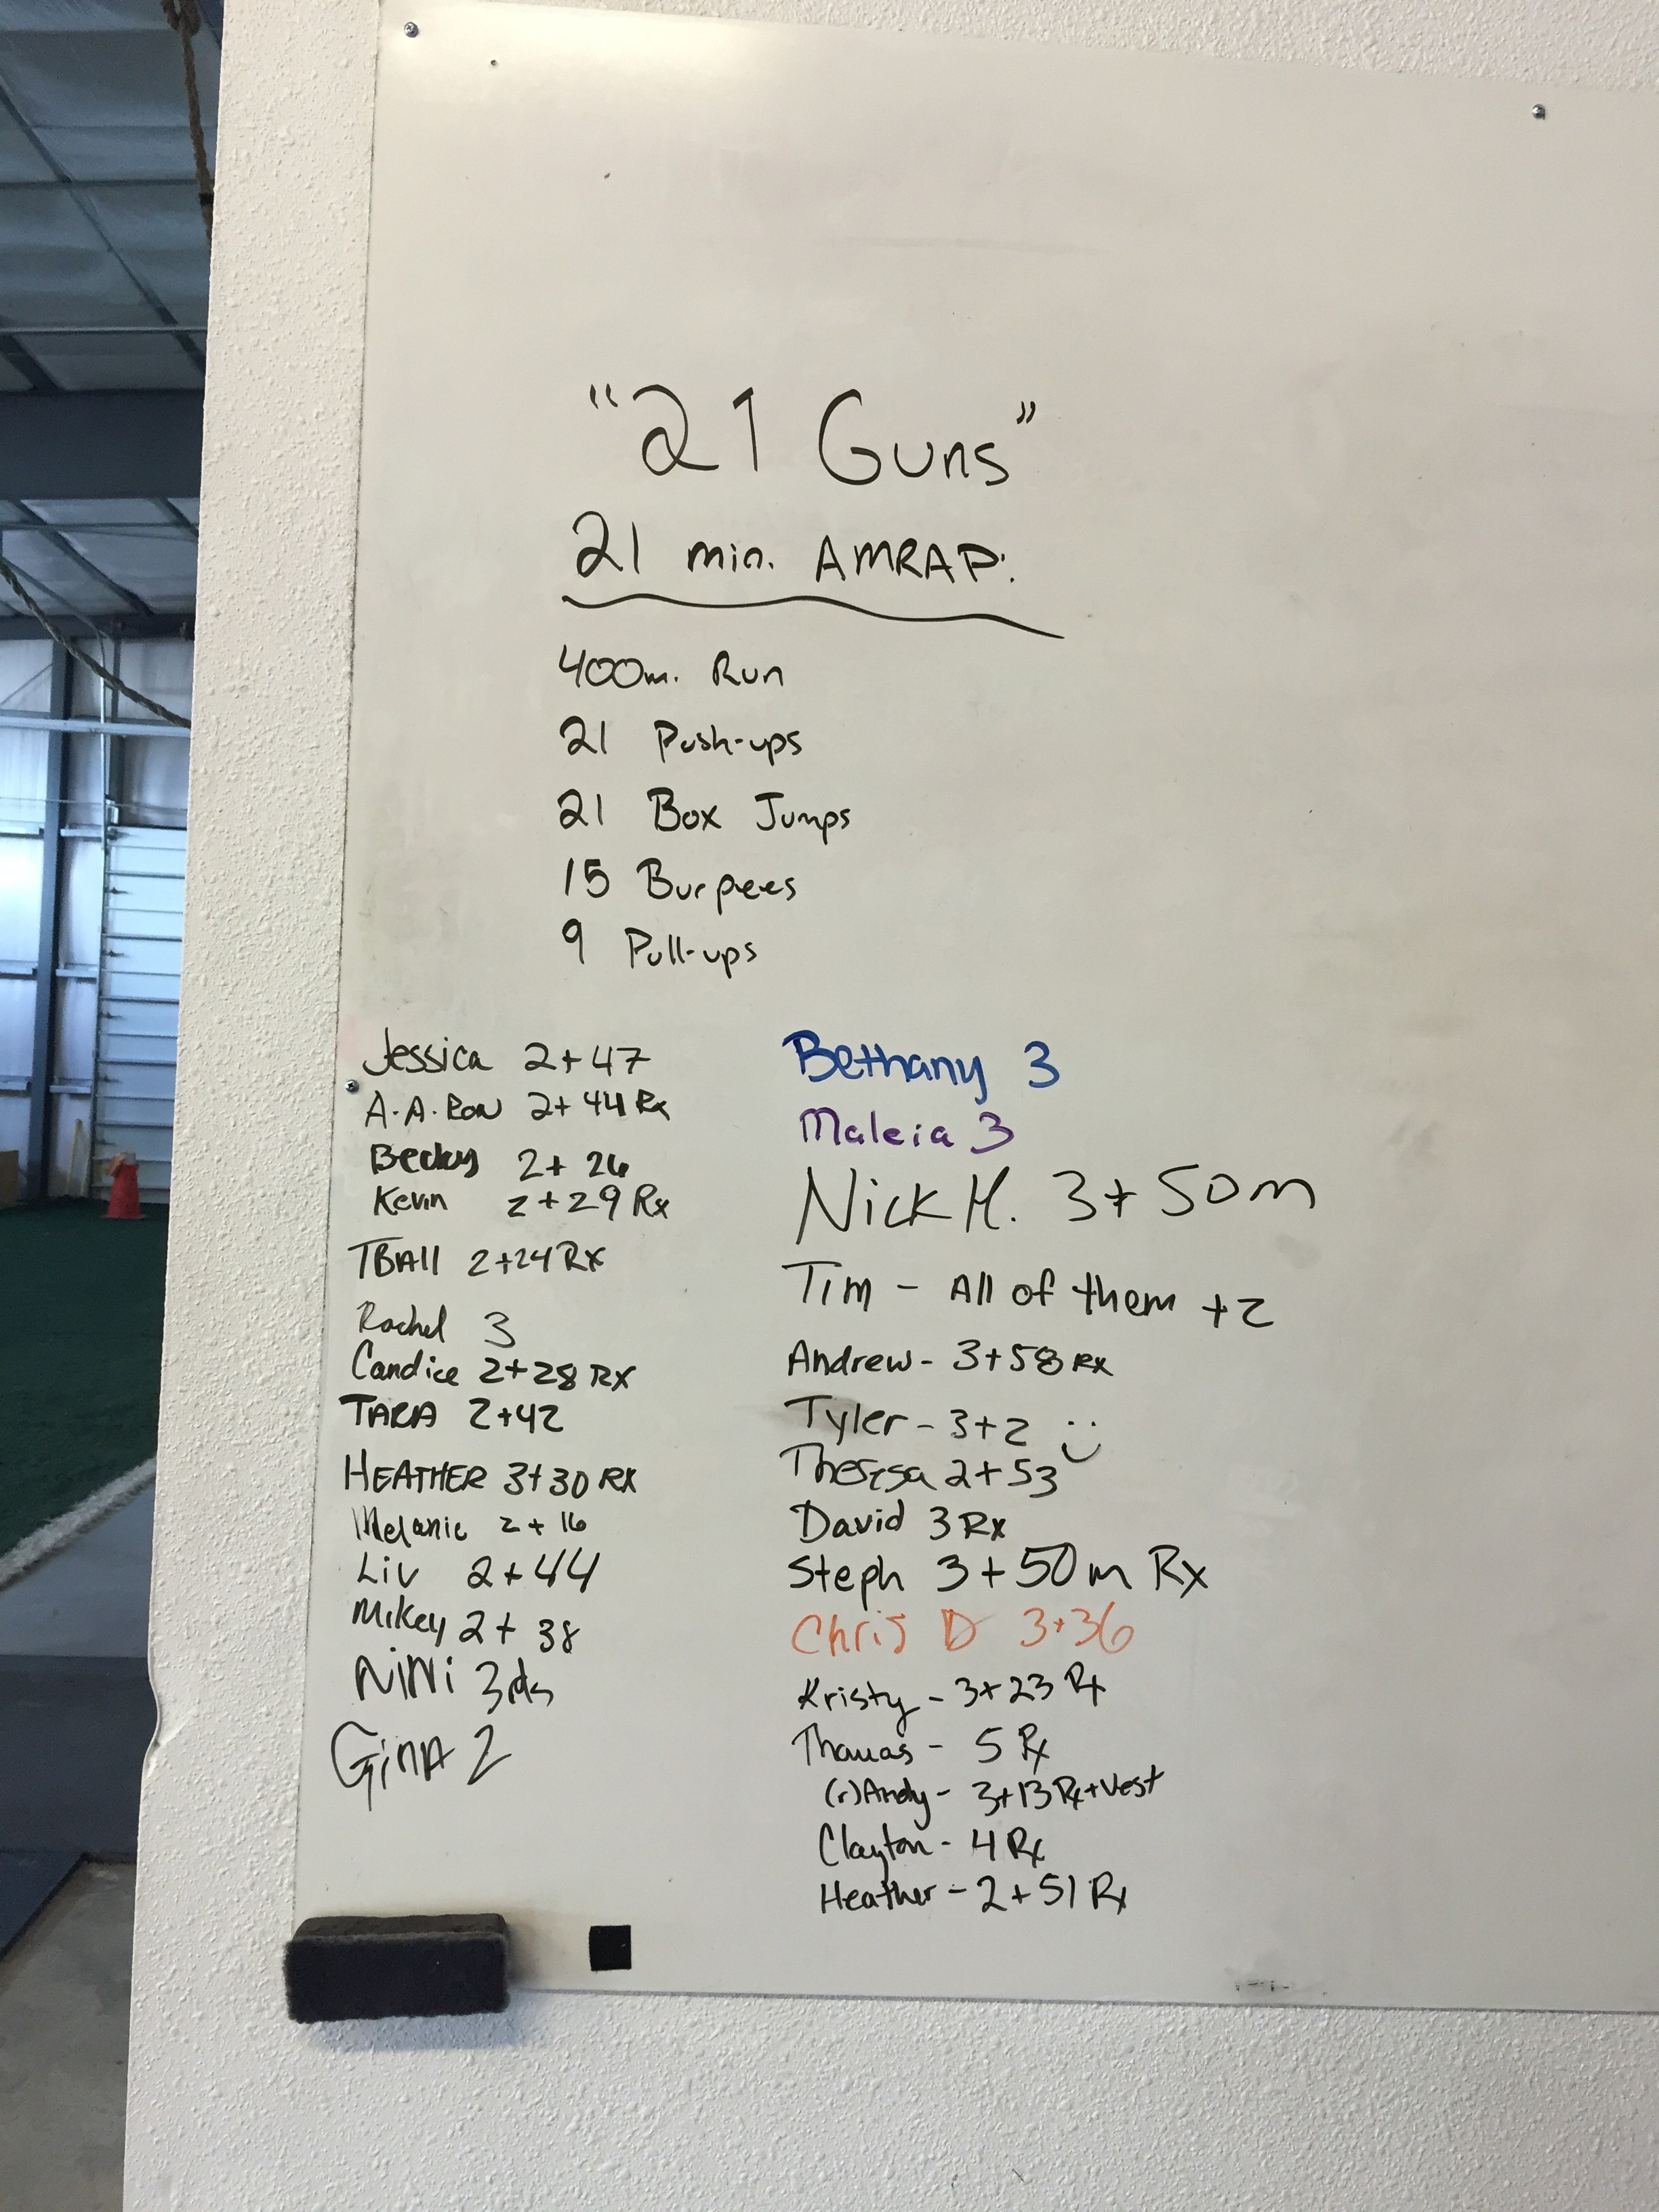 "21 Guns"
21 min. AMRAP:
400m. Run
21 Push-ups
21 Box Jumps
15 Burpees
9 Pull-ups
Jessica 2+47
A.A.Ron 2+44 Rx
Becky 2+26
Kevin 2+29 Rx
TBAll 2+24 Rx
Rachel 3
Candice 2+28 Rx
TARA 2+42
HEATHER 3+30 RX
Melanie 2+16
Liv 2+44
Mikey 2+38
NiNi 3rds
GinA 2
Bethany 3
Maleia 3
Nick H. 3+50m
Tim - All of them +2
Andrew - 3+58 Rx
Tyler - 3+2
Theresa 2+53
David 3 Rx
Steph 3+50m Rx
Chris D 3+36
Kristy - 3+23 Rx
Thomas - 5 Rx
(r)Andy - 3+13 Rx+Vest
Clayton - 4 Rx
Heather - 2+51 Rx